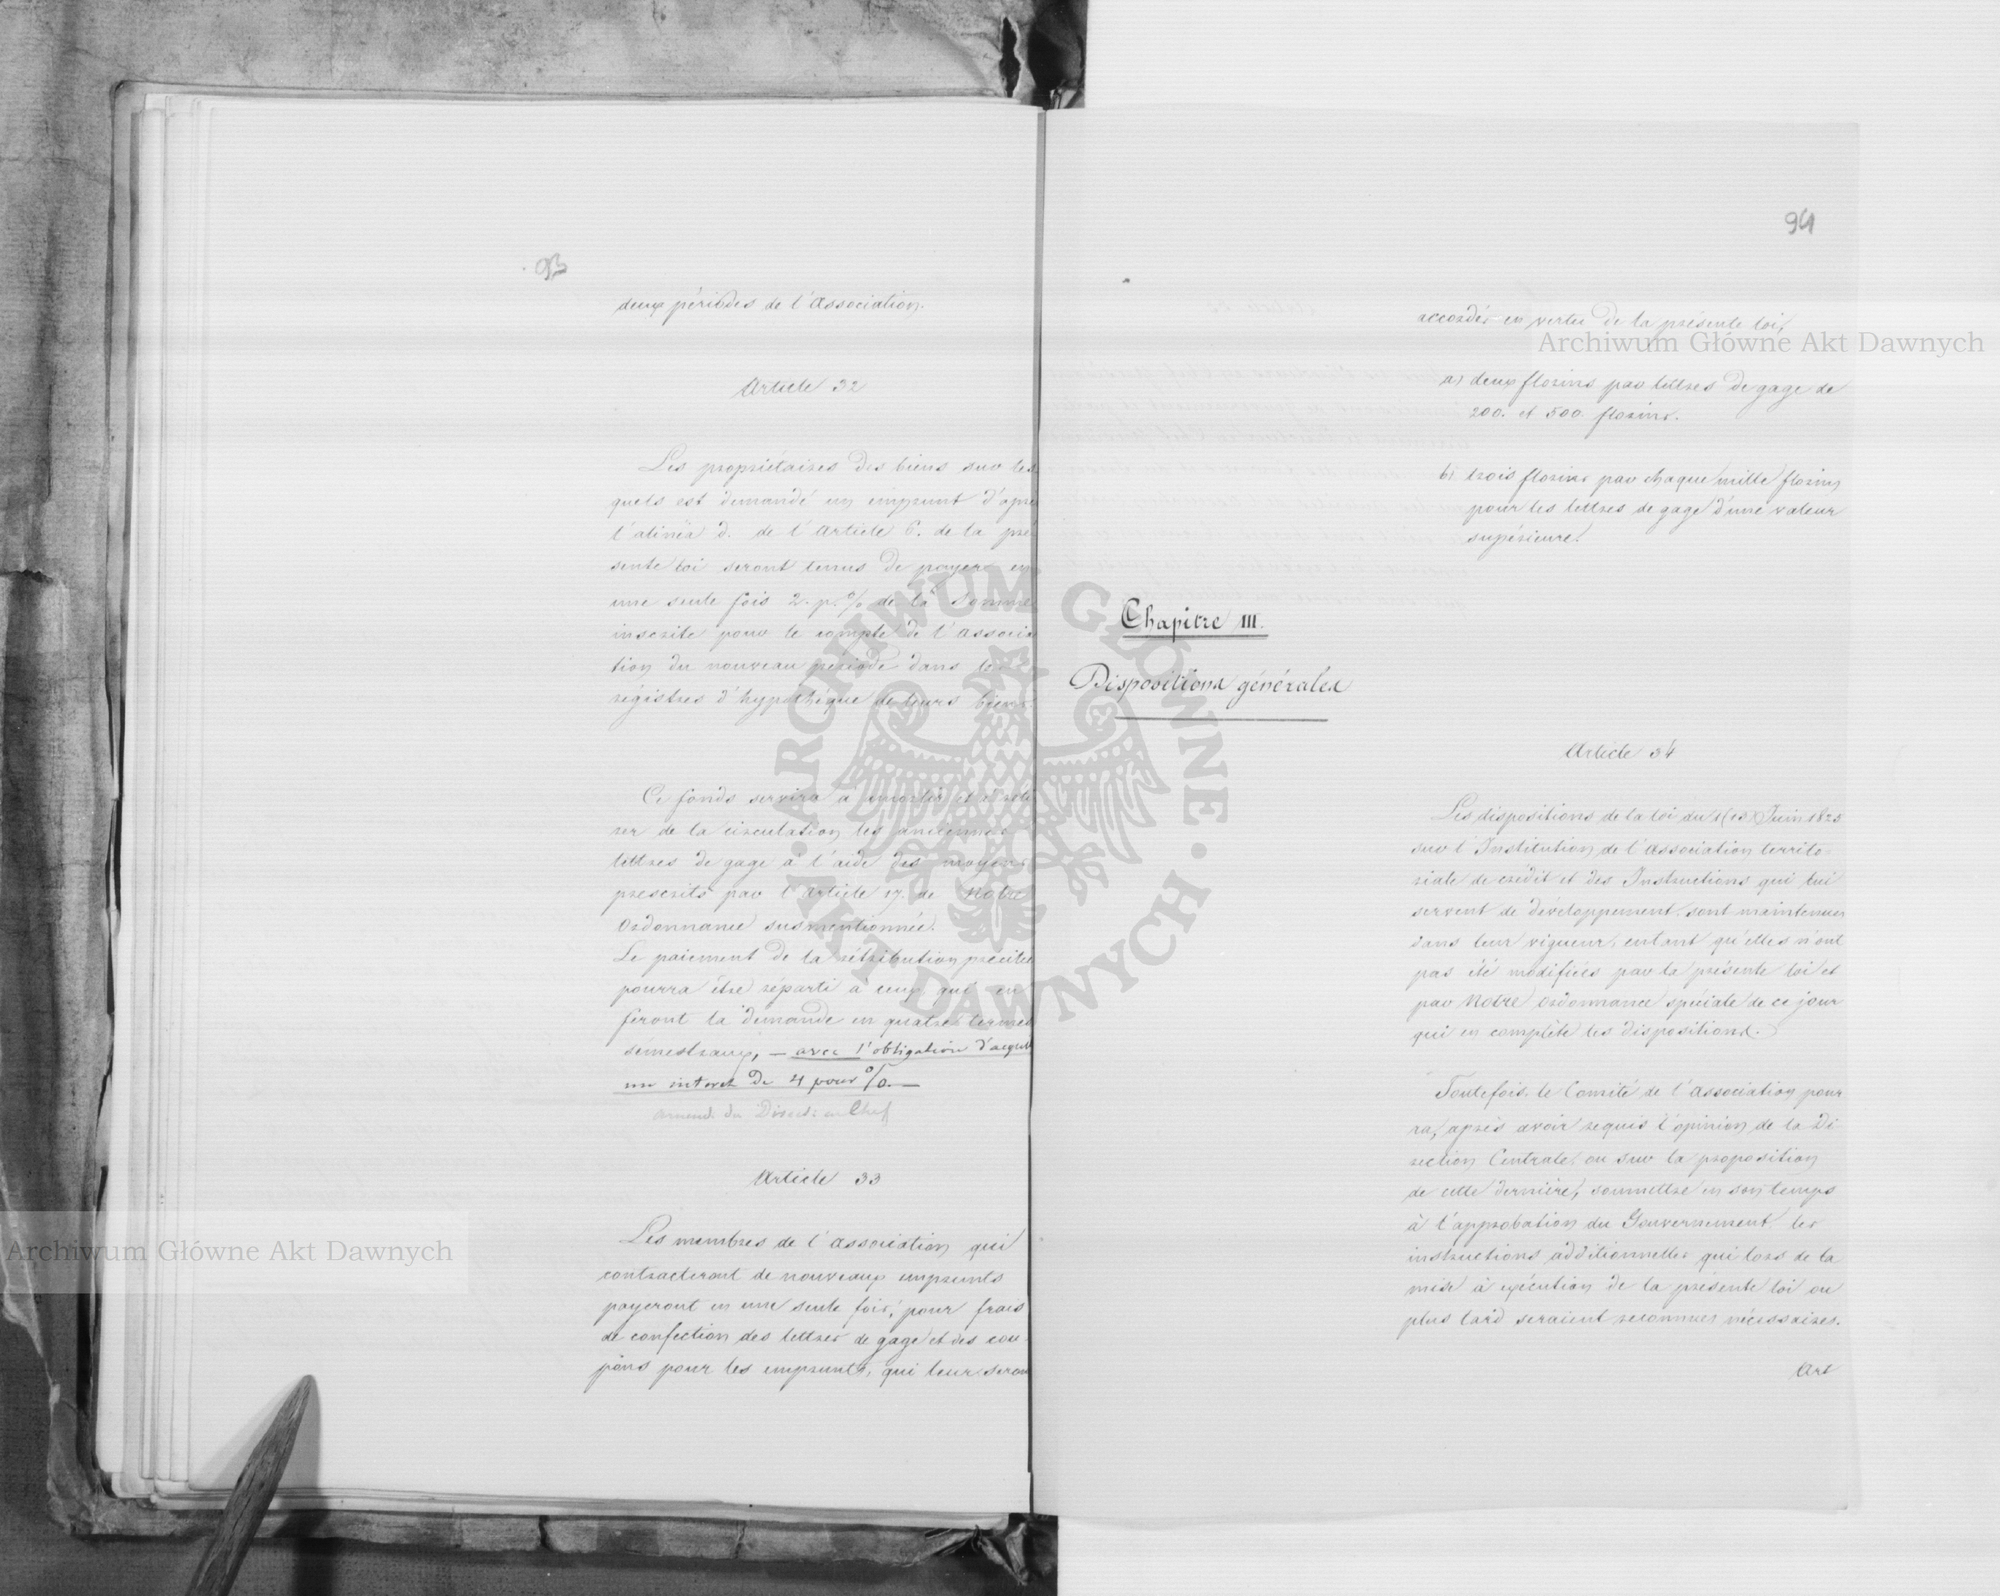 93
deux périodes de l'Association.
Article 32
Les propriétaires des biens sur les
quels est demandé un emprunt d'après
l'alinéa d. de l'Article 6. de la pré
sente loi seront tenus de payer en
une seule fois 2. p. % de la somme
inscrite pour le compte de l'associa
tion du nouveau période dans les
régistres d'hypothéque de leurs biens.
Ce fonds servira à amortir et à reti
rer de la circulation les anciennes
lettres de gage à l'aide des moyens
prescrits par l'Article 17. de Notre
Ordonnance susmentionnée.
Le paiement de la rétribution précitée
pourra être réparti à ceux qui en
feront la demande en quatre termes
sémestraux, — avec l'obligation d'acquit
un interet de 4 pour %. —
amend. du Direct: en Chef
Article 33
Les membres de l'association qui
contracteront de nouveaux emprunts
payeront en une seule fois, pour frais
de confection des lettres de gage et des cou-
pons pour les emprunts, qui leur seron
94
accordés en vertu de la présente loi,
a) deux florins par lettres de gage de
200. et 500. florins.
b) trois florins par chaque mille florins
pour les lettres de gage d'une valeur
supérieure.
Chapitre III.
Dispositions générales
Article 34
Les dispositions de la loi du 1(13) Juin 1825
sur l'Institution de l'association territo-
riale de crédit et des Instructions qui lui
servent de développement, sont maintenues
dans leur vigueur, entant qu'elles n'ont
pas été modifiées par la présente loi et
par Notre ordonnance spéciale de ce jour
qui en complète les dispositions.
Toutefois le Comité de l'association pour
ra, après avoir requis l'opinion de la Di
rection Centrale, ou sur la proposition
de cette dernière, soumettre en son temps
à l'approbation du Gouvernement les
instructions additionnelles qui lors de la
mise à exécution de la présente loi ou
plus tard seraient reconnues nécessaires.
Art
Archiwum Główne Akt Dawnych
Archiwum Główne Akt Dawnych
· ARCHIWUM GŁÓWNE · AKT DAWNYCH